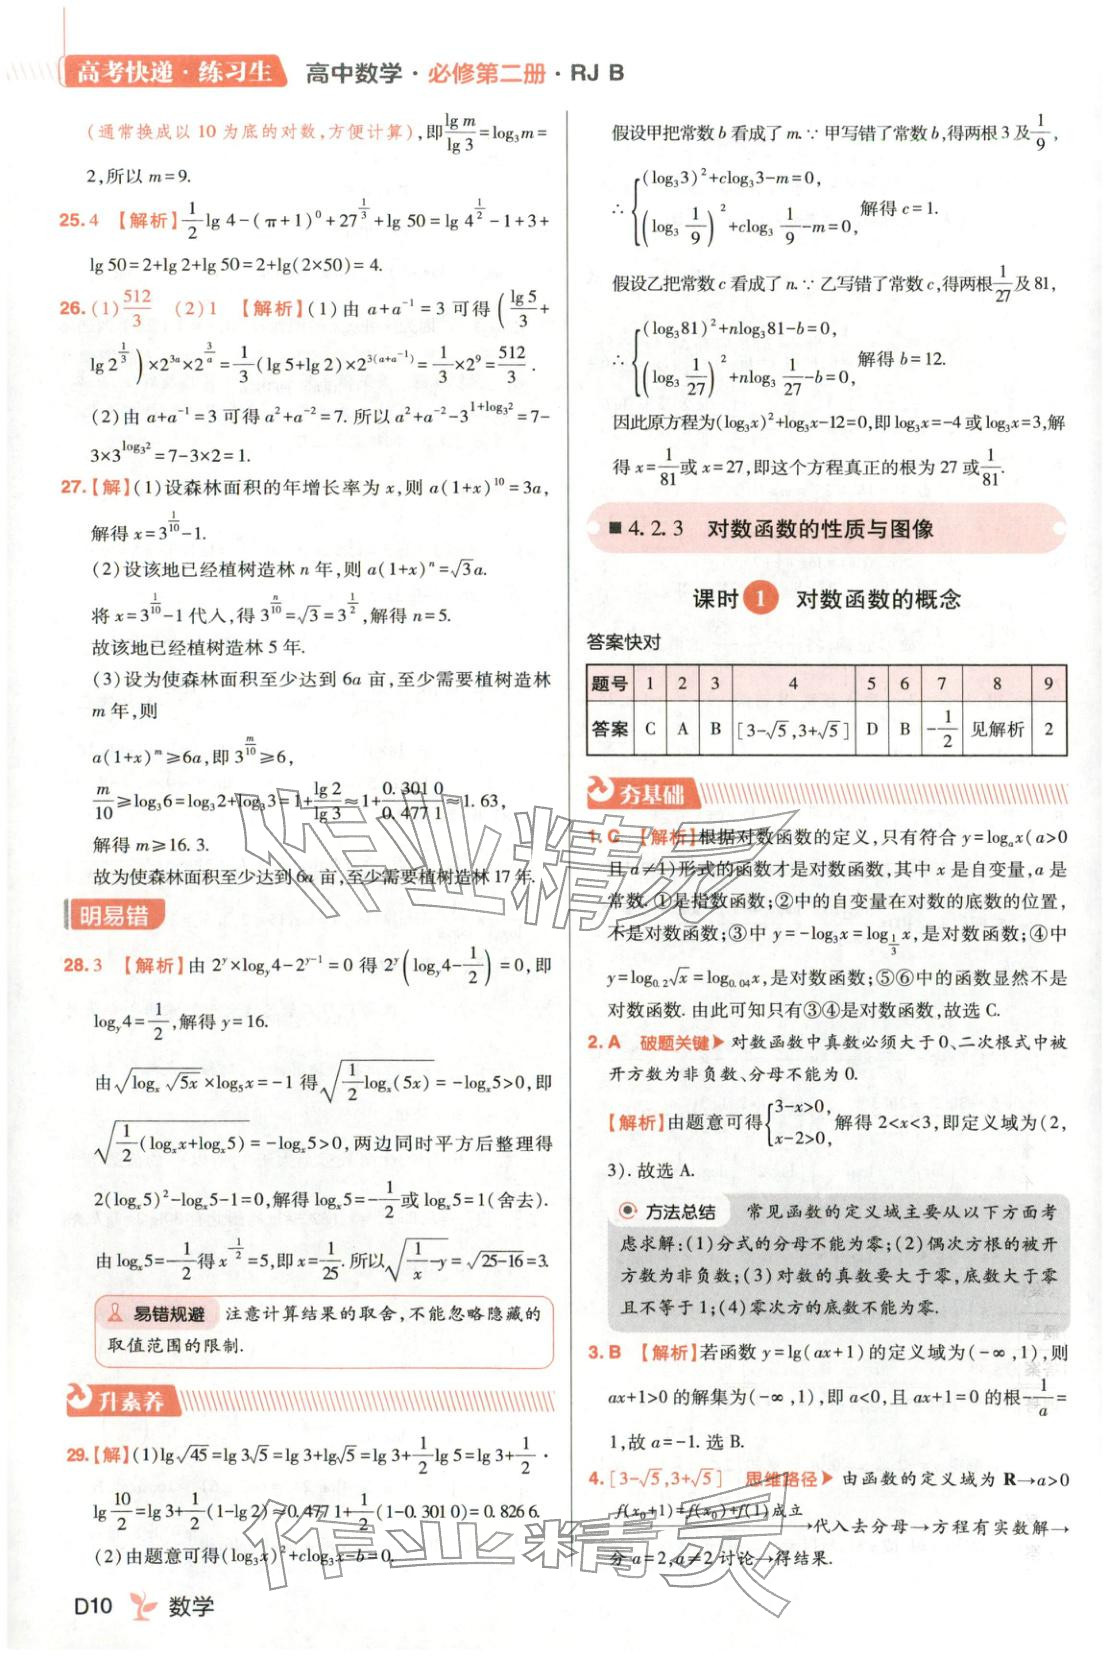 高考快递·练习生 高中数学·必修第二册·RJ B
(通常换成以 10 为底的对数,方便计算),即\frac{lg m}{lg 3}=log₃m=
2,所以 m=9.
25.4 【解析】\frac{1}{2}lg 4-(π+1)^0+27^{\frac{1}{3}}+lg 50=lg 4^{\frac{1}{2}}-1+3+
lg 50=2+lg 2+lg 50=2+lg(2×50)=4.
26.(1)\frac{512}{3} (2)1 【解析】(1)由 a+a^{-1}=3 可得(\frac{lg 5}{3}+
lg 2^{\frac{1}{3}})×2^{3a}×2^{\frac{3}{a}}=\frac{1}{3}(lg 5+lg 2)×2^{3(a+a^{-1})}=\frac{1}{3}×2^9=\frac{512}{3}.
(2)由 a+a^{-1}=3 可得 a²+a^{-2}=7. 所以 a²+a^{-2}-3^{1+log₃2}=7-
3×3^{log₃2}=7-3×2=1.
27.【解】(1)设森林面积的年增长率为 x,则 a(1+x)^{10}=3a,
解得 x=3^{\frac{1}{10}}-1.
(2)设该地已经植树造林 n 年,则 a(1+x)^n=√3a.
将 x=3^{\frac{1}{10}}-1 代入,得 3^{\frac{n}{10}}=√3=3^{\frac{1}{2}},解得 n=5.
故该地已经植树造林 5 年.
(3)设为使森林面积至少达到 6a 亩,至少需要植树造林
m 年,则
a(1+x)^m≥6a,即 3^{\frac{m}{10}}≥6,
\frac{m}{10}≥log₃6=log₃2+log₃3=1+\frac{lg 2}{lg 3}≈1+\frac{0.301 0}{0.477 1}≈1.63,
解得 m≥16.3.
故为使森林面积至少达到6a 亩,至少需要植树造林 17 年.
明易错
28.3 【解析】由 2^y×log_y4-2^{y-1}=0 得 2^y(log_y4-\frac{1}{2})=0,即
log_y4=\frac{1}{2},解得 y=16.
由\sqrt{log_x\sqrt{5x}}×log₅x=-1 得\sqrt{\frac{1}{2}log_x(5x)}=-log_x5>0,即
\sqrt{\frac{1}{2}(log_xx+log_x5)}=-log_x5>0,两边同时平方后整理得
2(log_x5)²-log_x5-1=0,解得 log_x5=-\frac{1}{2}或 log_x5=1(舍去).
由 log_x5=-\frac{1}{2}得 x^{-\frac{1}{2}}=5,即 x=\frac{1}{25}.所以\sqrt{\frac{1}{x}-y}=\sqrt{25-16}=3.
易错规避 注意计算结果的取舍,不能忽略隐藏的
取值范围的限制.
升素养
29.【解】(1)lg\sqrt{45}=lg 3√5=lg 3+lg√5=lg 3+\frac{1}{2}lg 5=lg 3+\frac{1}{2}·
lg\frac{10}{2}=lg 3+\frac{1}{2}(1-lg 2)≈0.477 1+\frac{1}{2}(1-0.301 0)=0.826 6.
(2)由题意可得(log₃x)²+clog₃x-b=0.
D10 数学
假设甲把常数 b 看成了 m.∵ 甲写错了常数 b,得两根 3 及\frac{1}{9},
∴ {(log₃3)²+clog₃3-m=0, (log₃\frac{1}{9})²+clog₃\frac{1}{9}-m=0, 解得 c=1.
假设乙把常数 c 看成了 n.∵ 乙写错了常数 c,得两根\frac{1}{27}及 81,
∴ {(log₃81)²+nlog₃81-b=0, (log₃\frac{1}{27})²+nlog₃\frac{1}{27}-b=0, 解得 b=12.
因此原方程为(log₃x)²+log₃x-12=0,即 log₃x=-4或 log₃x=3,解
得 x=\frac{1}{81}或 x=27,即这个方程真正的根为 27 或\frac{1}{81}.
■ 4.2.3 对数函数的性质与图像
课时 1 对数函数的概念
答案快对
题号 1 2 3 4 5 6 7 8 9
答案 C A B [3-√5,3+√5] D B -\frac{1}{2} 见解析 2
夯基础
1.C 【解析】根据对数函数的定义,只有符合 y=log_ax(a>0
且 a≠1)形式的函数才是对数函数,其中 x 是自变量,a 是
常数.①是指数函数;②中的自变量在对数的底数的位置,
不是对数函数;③中 y=-log₃x=log_{\frac{1}{3}}x,是对数函数;④中
y=log_{0.2}√x=log_{0.04}x,是对数函数;⑤⑥中的函数显然不是
对数函数. 由此可知只有③④是对数函数,故选 C.
2.A 破题关键▶ 对数函数中真数必须大于 0、二次根式中被
开方数为非负数、分母不能为 0.
【解析】由题意可得{3-x>0, x-2>0, 解得 2<x<3,即定义域为(2,
3). 故选 A.
方法总结 常见函数的定义域主要从以下方面考
虑求解:(1)分式的分母不能为零;(2)偶次方根的被开
方数为非负数;(3)对数的真数要大于零,底数大于零
且不等于 1;(4)零次方的底数不能为零.
3.B 【解析】若函数 y=lg(ax+1)的定义域为(-∞,1),则
ax+1>0 的解集为(-∞,1),即 a<0,且 ax+1=0 的根-\frac{1}{a}=
1,故 a=-1. 选 B.
4.[3-√5,3+√5] 思维路径▶ 由函数的定义域为 R→a>0
f(x₀+1)=f(x₀)+f(1)成立→代入去分母→方程有实数解→
分 a=2,a≠2 讨论→得结果.
作业精灵
作业精灵